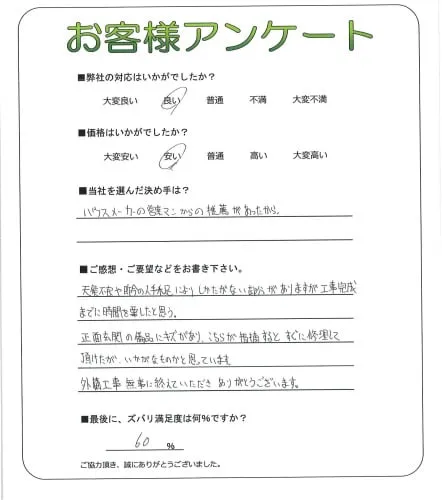 お客様アンケート
■弊社の対応はいかがでしたか？
大変良い 良い 普通 不満 大変不満
■価格はいかがでしたか？
大変安い 安い 普通 高い 大変高い
■当社を選んだ決め手は？
ハウスメーカーの営業マンからの推薦があったから。
■ご感想・ご要望などをお書き下さい。
天候不良や昨今の人手不足によりしかたがない部分がありますが工事完成
までに時間を要したと思う。
正面玄関の備品にキズがあり、こちらが指摘するとすぐに修理して
頂けたが、いかがなものかと思っています
外構工事 無事に終えていただき ありがとうございます。
■最後に、ズバリ満足度は何%ですか？
60 %
ご協力頂き、誠にありがとうございました。